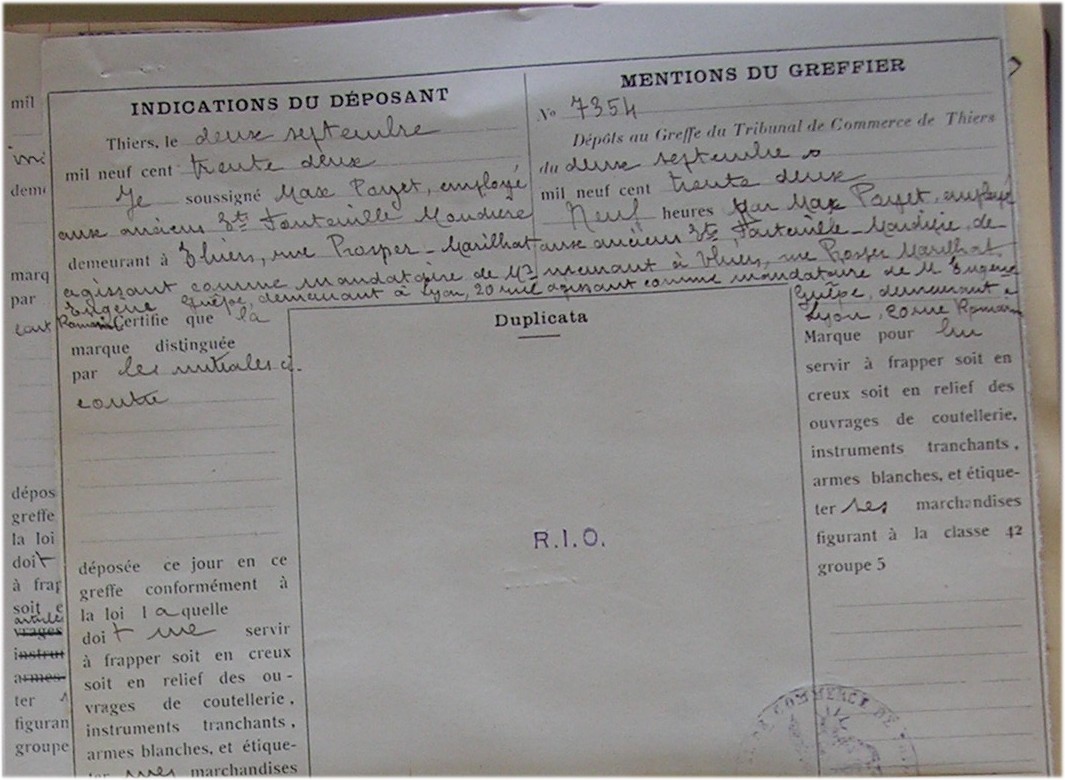 INDICATIONS DU DÉPOSANT
Thiers, le deux septembre
mil neuf cent trente deux
Je soussigné Max Payet, employé
aux anciens Ets Fontenille Maudière
demeurant à Thiers, rue Prosper-Marilhat
agissant comme mandataire de Mr
Eugène Guêpe, demeurant à Lyon, 20 rue
Romarin Certifie que la
marque distinguée
par les initiales ci-
contre
déposée ce jour en ce
greffe conformément à
la loi laquelle
doit me servir
à frapper soit en creux
soit en relief des ou-
vrages de coutellerie,
instruments tranchants,
armes blanches, et étique-
ter mes marchandises
Duplicata
R.I.O.
MENTIONS DU GREFFIER
No 7354
Dépôts au Greffe du Tribunal de Commerce de Thiers
du deux septembre
mil neuf cent trente deux
Neuf heures Par Max Payet, employé
aux anciens Ets Fontenille-Maudière, de
meurant à Thiers, rue Prosper Marilhat
agissant comme mandataire de M Eugène
Guêpe, demeurant à
Lyon, 20 rue Romarin
Marque pour lui
servir à frapper soit en
creux soit en relief des
ouvrages de coutellerie,
instruments tranchants,
armes blanches, et étique-
ter ses marchandises
figurant à la classe 42
groupe 5
DE COMMERCE DE
mil
marq
par
cont
dépos
greffe
la loi
doit
à frap
soit e
vrages
instrut
armes
ter
figuran
groupe